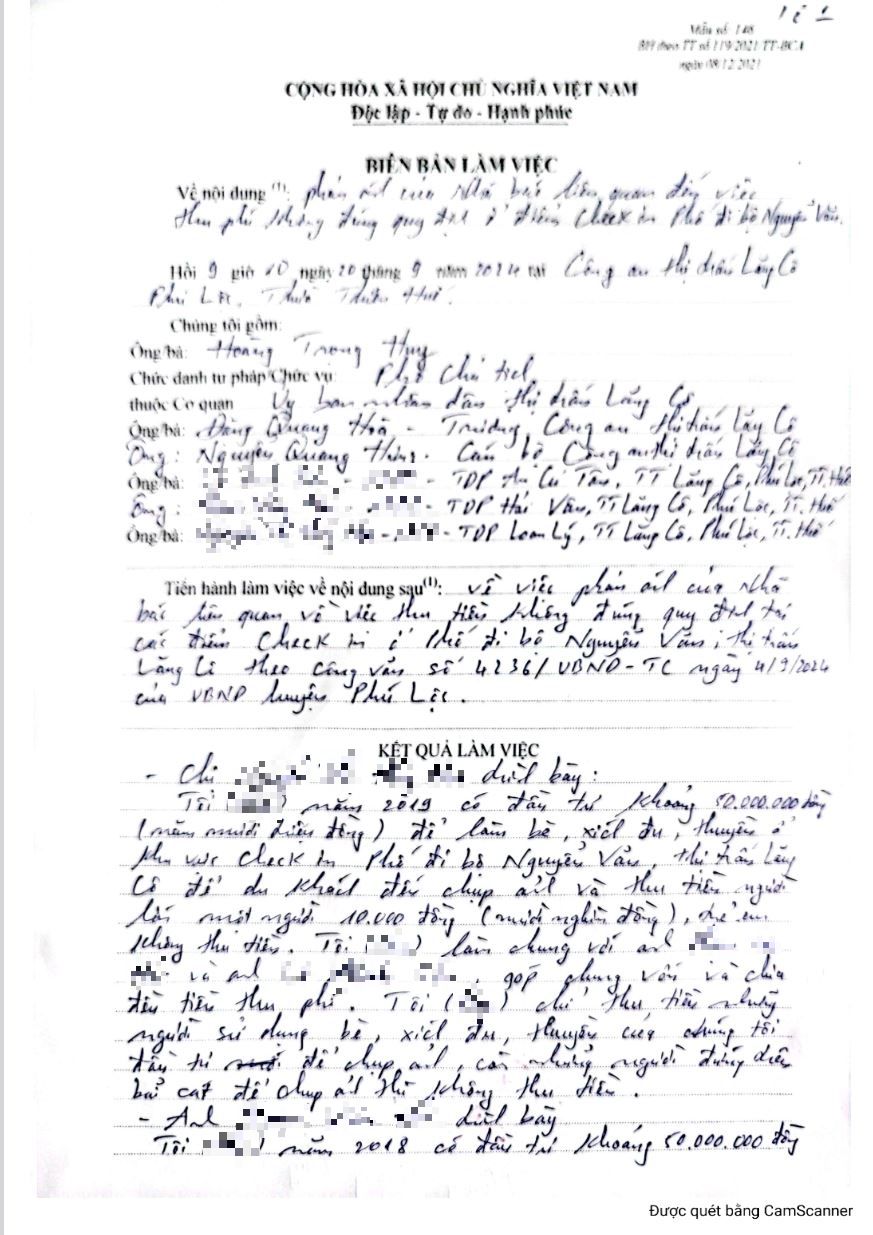 Tờ 1
Mẫu số: 148
BH theo TT số 119/2021/TT-BCA
ngày 08/12/2021
CỘNG HÒA XÃ HỘI CHỦ NGHĨA VIỆT NAM
Độc lập - Tự do - Hạnh phúc
BIÊN BẢN LÀM VIỆC
Về nội dung (1): phản ánh của Nhà báo liên quan đến việc
thu phí không đúng quy định ở điểm Check in Phố đi bộ Nguyễn Văn.
Hồi 9 giờ 10 ngày 20 tháng 9 năm 2024 tại Công an thị trấn Lăng Cô
Phú Lộc, Thừa Thiên Huế.
Chúng tôi gồm:
Ông/bà: Hoàng Trọng Huy
Chức danh tư pháp/Chức vụ: Phó Chủ tịch
thuộc Cơ quan Uỷ ban nhân dân thị trấn Lăng Cô
Ông/bà: Đặng Quang Hoà - Trưởng Công an thị trấn Lăng Cô
Ông: Nguyễn Quang Hùng - Cán bộ Công an thị trấn Lăng Cô
Ông/bà: - TDP An Cư Tân, TT Lăng Cô, Phú Lộc, TT. Huế
Ông: - TDP Hải Vân, TT Lăng Cô, Phú Lộc, TT. Huế
Ông/bà: - TDP Loan Lý, TT Lăng Cô, Phú Lộc, TT. Huế
Tiến hành làm việc về nội dung sau(1): về việc phản ánh của Nhà
báo liên quan về việc thu tiền không đúng quy định tại
các điểm Check in ở Phố đi bộ Nguyễn Văn, thị trấn
Lăng Cô theo công văn số 4236/UBND-TC ngày 4/9/2024
của UBND huyện Phú Lộc.
KẾT QUẢ LÀM VIỆC
- Chị trình bày:
Tôi ( ) năm 2019 có đầu tư khoảng 50.000.000 đồng
(năm mươi triệu đồng) để làm bè, xích đu, thuyền ở
khu vực Check in Phố đi bộ Nguyễn Văn, thị trấn Lăng
Cô để du khách đến chụp ảnh và thu tiền người
lớn một người 10.000 đồng (mười nghìn đồng), trẻ em
không thu tiền. Tôi ( ) làm chung với anh
và anh , góp chung vốn và chia
đều tiền thu phí. Tôi ( ) chỉ thu tiền những
người sử dụng bè, xích đu, thuyền của chúng tôi
đầu tư để chụp ảnh, còn những người đứng trên
bãi cát để chụp ảnh thì không thu tiền.
- Anh trình bày
Tôi ( ) năm 2018 có đầu tư khoảng 50.000.000 đồng
Được quét bằng CamScanner